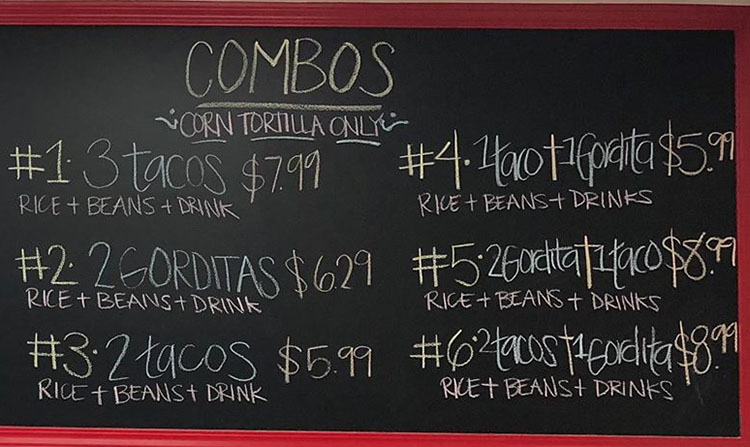 COMBOS
CORN TORTILLA ONLY
#1. 3 tacos $7.99
RICE + BEANS + DRINK
#2. 2 GORDITAS $6.29
RICE + BEANS + DRINK
#3. 2 tacos $5.99
RICE + BEANS + DRINK
#4. 1 taco + 1 Gordita $5.99
RICE + BEANS + DRINKS
#5. 2 Gordita + 1 taco $8.99
RICE + BEANS + DRINKS
#6. 2 tacos + 1 Gordita $8.99
RICE + BEANS + DRINKS